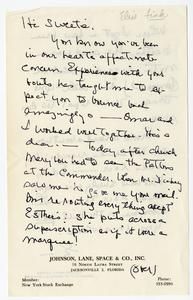 Hi Sweetie.
You know you've been
in our hearts affectionate
concern. Experiences with you
has taught me to ex-
pect you to bounce back
amazingly — Omar and
I worked well together. He's a
dear. Today after church
Mary Lou had to see the Pattons
at the Commander.
said me he gave me your mail.
Am re-routing everything except
Esther's: she puts across a
superscription as if it were a
marquee!
JOHNSON, LANE, SPACE & CO., INC.
JACKSONVILLE 2, FLORIDA
(OVER)
Member:
New York Stock Exchange
Phone: